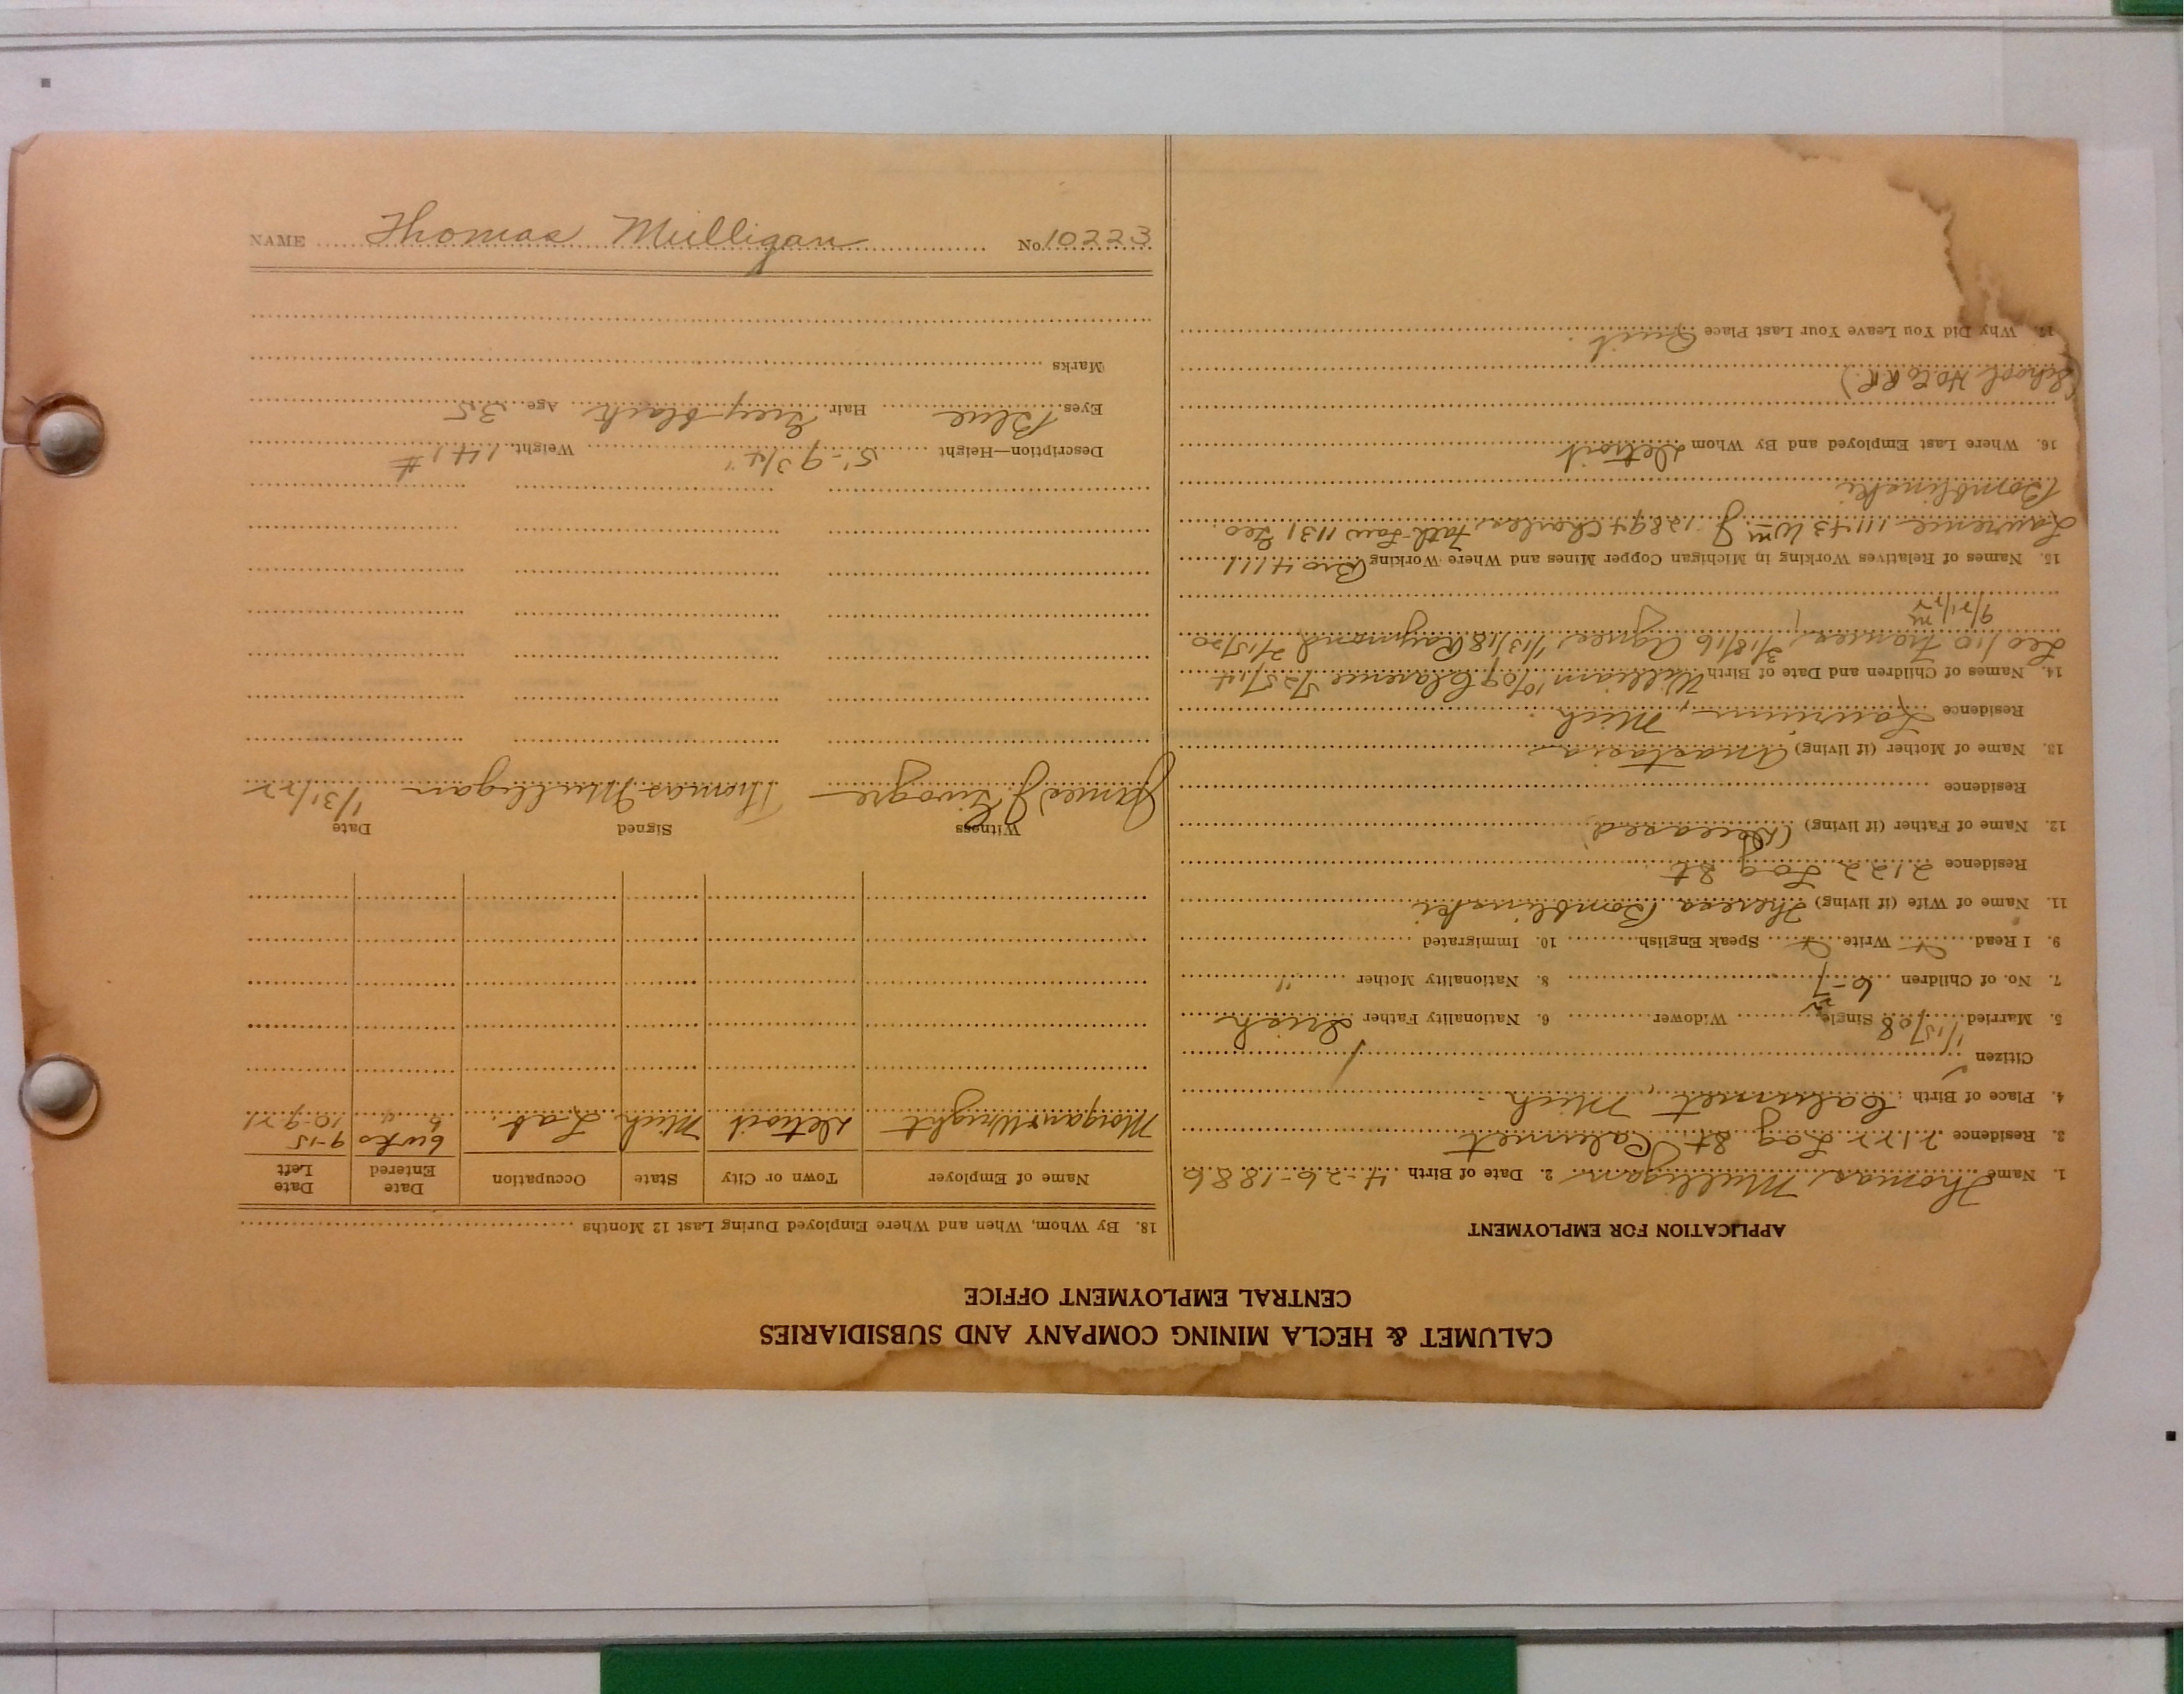 CALUMET & HECLA MINING COMPANY AND SUBSIDIARIES
CENTRAL EMPLOYMENT OFFICE
APPLICATION FOR EMPLOYMENT
1. Name Thomas Mulligan 2. Date of Birth 4-26-1886
3. Residence 2122 Log St Calumet
4. Place of Birth Calumet, Mich
Citizen
5. Married 1/15/08 Single Widower 6. Nationality Father Irish
7. No. of Children 6-7 8. Nationality Mother "
9. I Read Write Speak English 10. Immigrated
11. Name of Wife (if living) Theresa Bomblinski
Residence 2122 Log St
12. Name of Father (if living) (Deceased)
Residence
13. Name of Mother (if living) Anastasia
Residence Laurium, Mich.
14. Names of Children and Date of Birth William 10/09 Clarence 7/25/14
Leo 1/10 Frances 3/18/16 Agnes 1/13/18 Raymond 2/15/20
9/21/22
15. Names of Relatives Working in Michigan Copper Mines and Where Working Bro 4111
Lawrence 11143 Wm J 12894 Charles, Fath-Law 1131 Geo
Bomblinski
16. Where Last Employed and By Whom Detroit
School Ho Co RR)
17. Why Did You Leave Your Last Place Quit.
18. By Whom, When and Where Employed During Last 12 Months
Name of Employer Town or City State Occupation Date Entered Date Left
Morgan & Wright Detroit Mich Lab. 6 wks 9-15
10-9 21
Witness Signed Date
James J. Thomas Mulligan 1/31/22
Description—Height 5'-9 3/4" Weight 141 #
Eyes Blue Hair Grey black Age 35
Marks
NAME Thomas Mulligan No. 10223